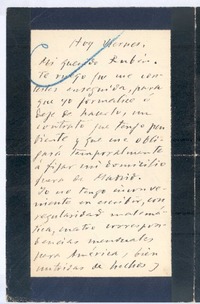 Hoy Viernes.
Mi querido Rubén:
Te ruego que me con-
testes enseguida, para
que yo formalice o
deje de hacerlo, un
contrato que tengo pen-
diente y que me obli-
gará temporalmente
a fijar mi domicilio
fuera de Madrid.
Yo no tengo inconve-
niente en escribir, con
regularidad matemá-
tica, cuatro correspon-
dencias mensuales
para América, bien
nutridas de hechos y